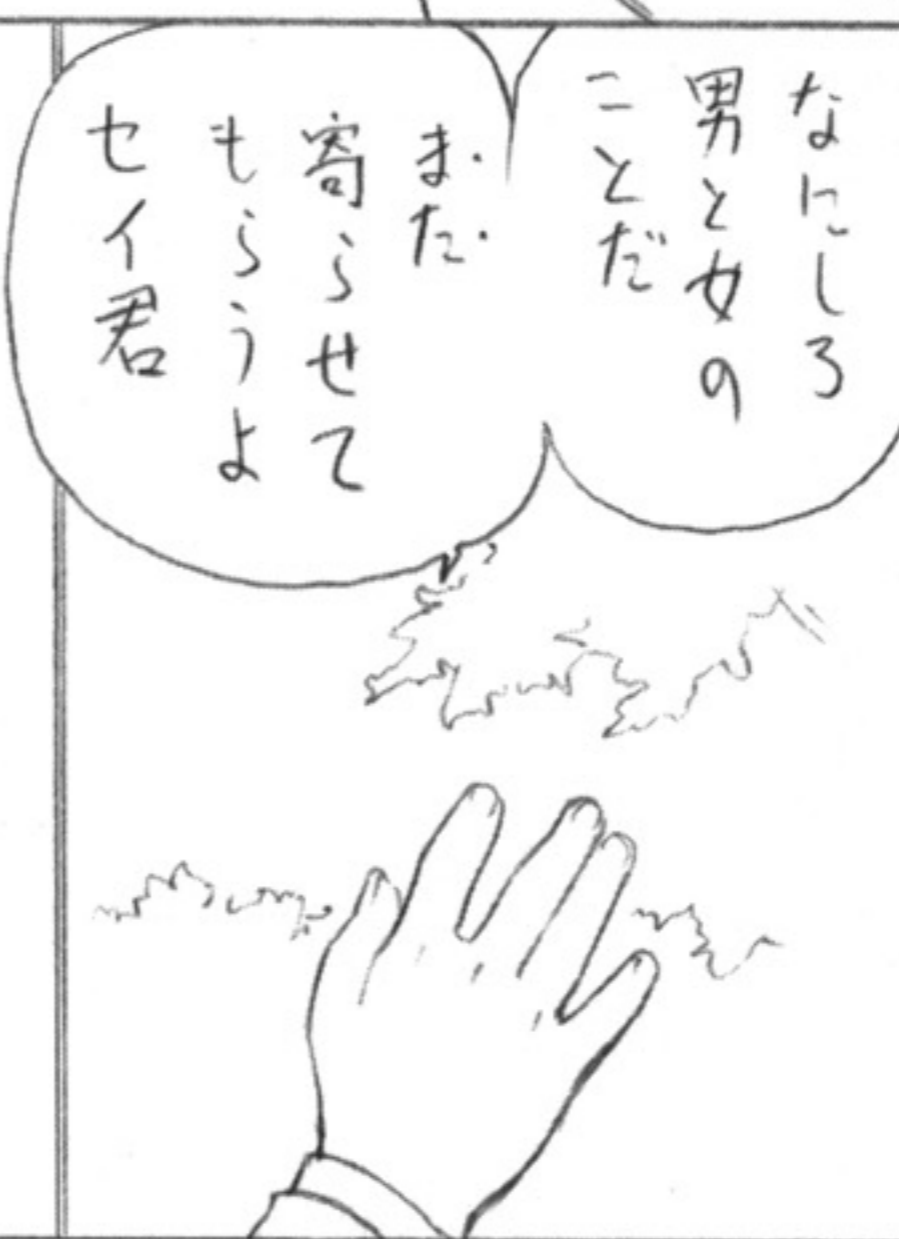 なにしろ
男と女の
ことだ
また
寄らせて
もらうよ
セイ君